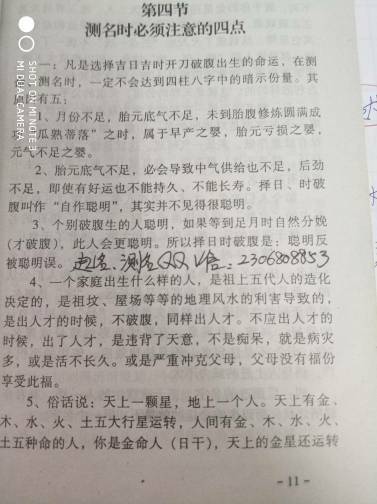 第四节
测名时必须注意的四点
一：凡是选择吉日吉时开刀破腹出生的命运，在测
测名时，一定不会达到四柱八字中的暗示份量。其
有五：
1、月份不足，胎元底气不足，未到胎腹修炼圆满成
瓜熟蒂落”之时，属于早产之婴，胎元亏损之婴，
元气不足之婴。
2、胎元底气不足，必会导致中气供给也不足，后劲
不足，即使有好运也不能持久、不能长寿。择日、时破
腹叫作“自作聪明”，其实并不见得很聪明。
3、个别破腹生的人聪明，如果等到足月时自然分娩
（才破腹），此人会更聪明。所以择日时破腹是：聪明反
被聪明误。 测名QQ V信：2306808853
4、一个家庭出生什么样的人，是祖上五代人的造化
决定的，是祖坟、屋场等等的地理风水的利害导致的，
是出人才的时候，不破腹，同样出人才。不应出人才的
时候，出了人才，是违背了天意，不是痴呆，就是病灾
多，或是活不长久。或是严重冲克父母，父母没有福份
享受此福。
5、俗话说：天上一颗星，地上一个人。天上有金、
木、水、火、土五大行星运转，人间有金、木、水、火、
土五种命的人，你是金命人（日干），天上的金星还运转
-11-
SHOT ON MI 6
MI DUAL CAMERA